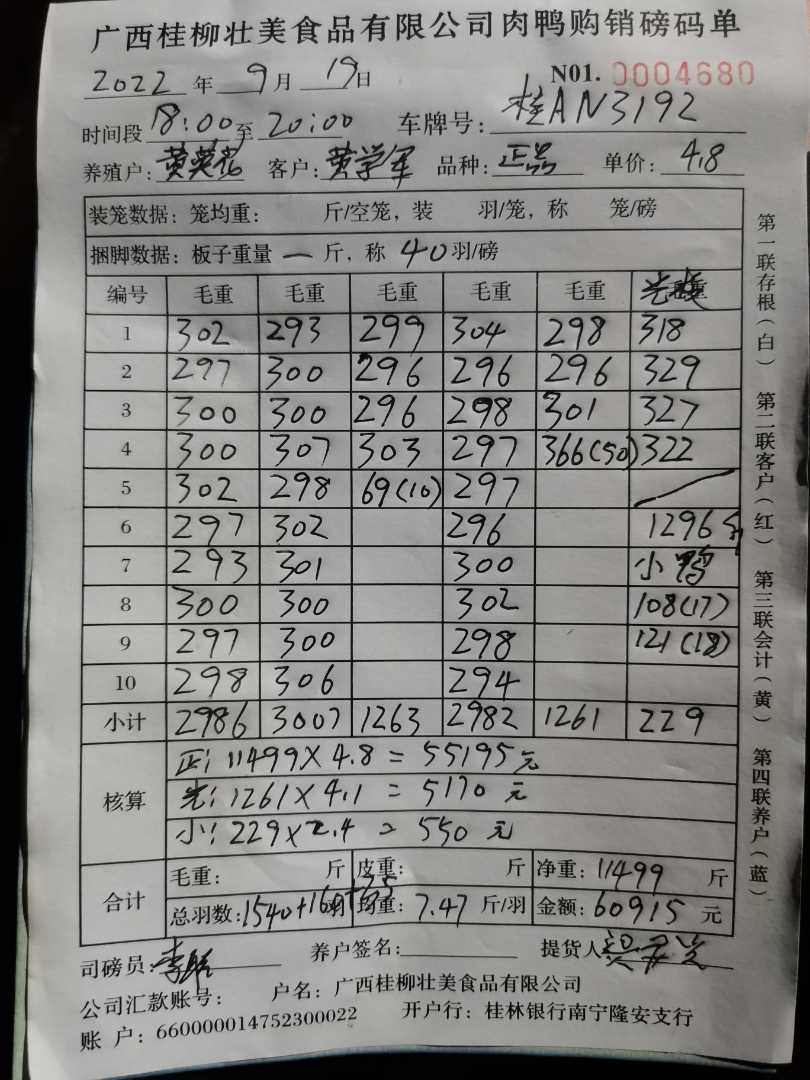 广西桂柳壮美食品有限公司肉鸭购销磅码单
2022年9月19日 N01. 0004680
时间段18:00至20:00 车牌号:桂AN3192
养殖户:黄英花 客户:黄学军 品种:正品 单价:4.8
装笼数据: 笼均重: 斤/空笼, 装 羽/笼, 称 笼/磅
捆脚数据: 板子重量 一 斤, 称 40羽/磅
编号 毛重 毛重 毛重 毛重 毛重
1 302 293 299 304 298 318
2 297 300 296 296 296 329
3 300 300 296 298 301 327
4 300 307 303 297 366(50) 322
5 302 298 69(10) 297
6 297 302 296 1296斤
7 293 301 300 小鸭
8 300 300 302 108(17)
9 297 300 298 121(18)
10 298 306 294
小计 2986 3007 1263 2982 1261 229
核算
正: 11499×4.8=55195元
光: 1261×4.1=5170元
小: 229×2.4=550元
合计
毛重: 斤 皮重: 斤 净重: 11499 斤
总羽数:1540+160+35 均重: 7.47 斤/羽 金额: 60915 元
司磅员: 养户签名: 提货人
公司汇款账号: 户名: 广西桂柳壮美食品有限公司
账 户: 660000014752300022 开户行: 桂林银行南宁隆安支行
第一联存根(白) 第二联客户(红) 第三联会计(黄) 第四联养户(蓝)